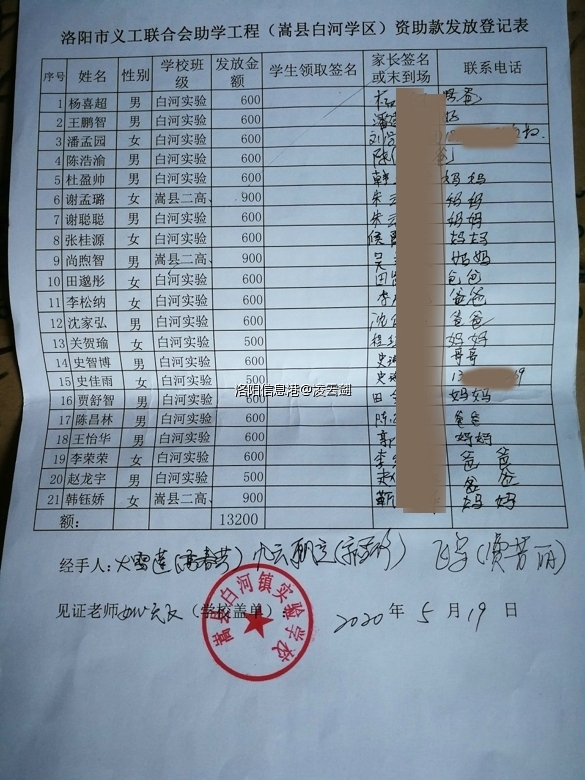 洛阳市义工联合会助学工程（嵩县白河学区）资助款发放登记表
序号 姓名 性别 学校班级 发放金额 学生领取签名 家长签名或未到场 联系电话
1 杨喜超 男 白河实验 600 爸
2 王鹏智 男 白河实验 600
3 潘孟园 女 白河实验 600 刘
4 陈浩渝 男 白河实验 600 陈 爸
5 杜盈帅 男 白河实验 600 韩 妈妈
6 谢孟璐 女 嵩县二高、 900 朱 妈妈
7 谢聪聪 男 白河实验 600 朱 妈妈
8 张桂源 女 白河实验 600 侯 妈妈
9 尚煦智 男 嵩县二高、 900 吴 妈妈
10 田邈彤 女 白河实验 600 田 爸爸
11 李松纳 女 白河实验 600 李 爸爸
12 沈家弘 男 白河实验 600 沈 爸爸
13 关贺瑜 女 白河实验 500 妈妈
14 史智博 男 白河实验 600 史 哥哥
15 史佳雨 女 白河实验 500 史
洛阳信息港@凌云剑
16 贾舒智 男 白河实验 600 田 妈妈
17 陈昌林 男 白河实验 600 陈 爸爸
18 王怡华 男 白河实验 600 郭 妈妈
19 李荣荣 女 白河实验 600 李 爸爸
20 赵龙宇 男 白河实验 500 赵 爸爸
21 韩钰娇 女 嵩县二高、 900 靳 妈妈
额： 13200
经手人：火雪莲 飞宇
见证老师 （学校盖单） 2020 年 5 月 19 日
嵩县白河镇实验学校